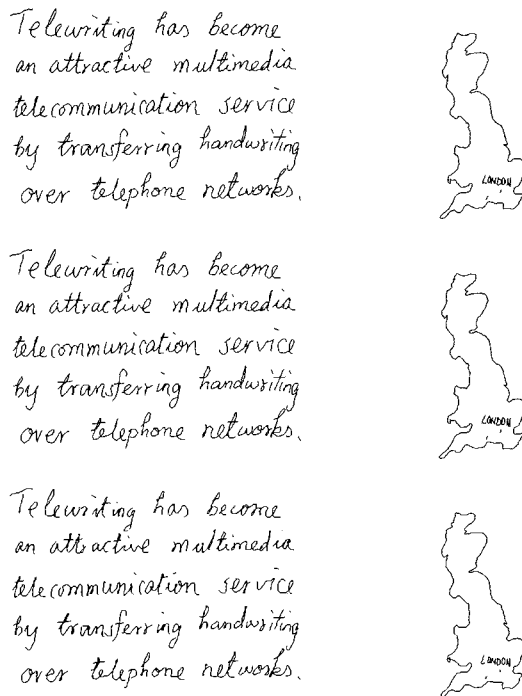 Telewriting has become
an attractive multimedia
telecommunication service
by transferring handwriting
over telephone networks.
LONDON
Telewriting has become
an attractive multimedia
telecommunication service
by transferring handwriting
over telephone networks.
LONDON
Telewriting has become
an attractive multimedia
telecommunication service
by transferring handwriting
over telephone networks.
LONDON